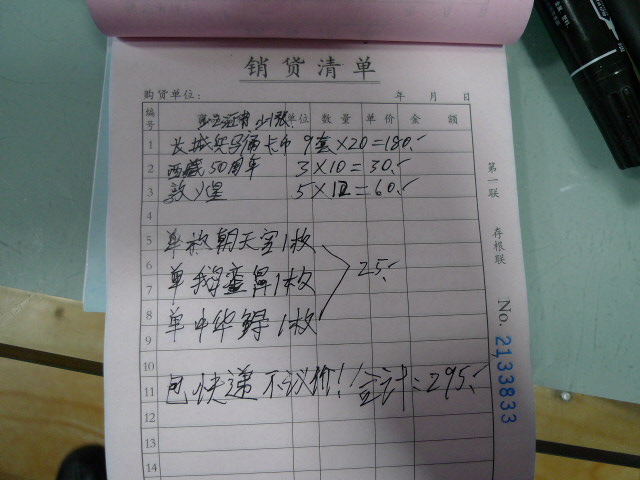 销货清单
购货单位： 年 月 日
编号 单位 数量 单价 金额
1 长城兵马俑卡币 9套×20=180.
2 西藏50周年 3×10=30.
3 敦煌 5×12=60.
4
5 单枚朝天宫1枚
6 25.
7 单枚 1枚
8
9 单中华鲟1枚
10
11 包快递不议价! 合计:295.
12
13
14
第一联 存根联
No. 2133833